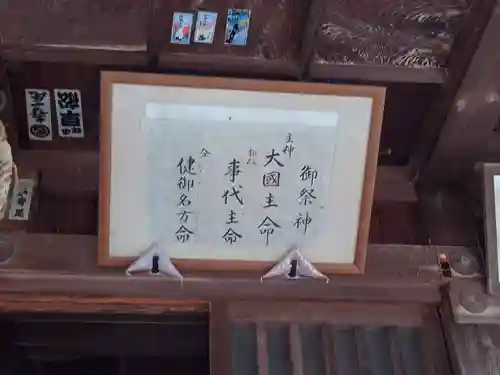 御祭神
主神
大國主命
相殿
事代主命
仝
健御名方命